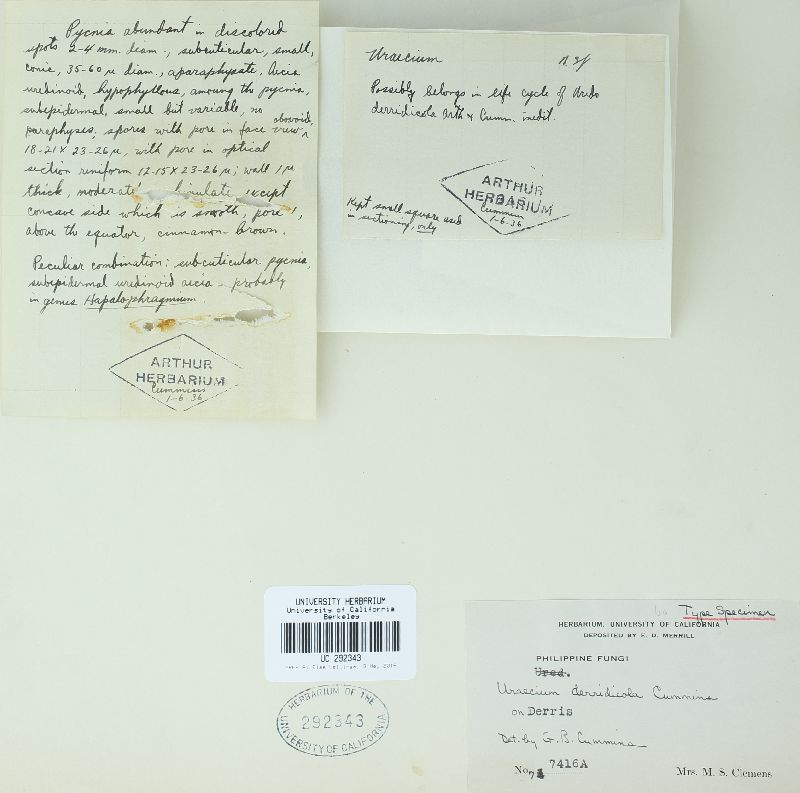 Pycnia abundant in discolored
spots 2-4 mm. diam., subcuticular, small,
conic, 35-60 µ diam., aparaphysate. Aecia
uredinoid, hypophyllous, among the pycnia,
subepidermal, small but variable, no
paraphyses, spores with pore in face view obovoid,
18-21 X 23-26 µ, with pore in optical
section reniform 12-15 X 23-26 µ; wall 1 µ
thick, moderate except
concave side which is smooth, pore 1,
above the equator, cinnamon-brown.
Peculiar combination: subcuticular pycnia,
subepidermal uredinoid aecia - probably
in genus Hapalophragmium
ARTHUR
HERBARIUM
Cummins
1-6-36
Uraecium n. sp
Possibly belongs in life cycle of Uredo
derridicola Arth & Cumm. inedit.
ARTHUR
HERBARIUM
Cummins
1-6-36
Kept small square used
in sectioning, only
UNIVERSITY HERBARIUM
University of California
Berkeley
UC 292343
HERBARIUM OF THE
292343
UNIVERSITY OF CALIFORNIA
Type Specimen
HERBARIUM, UNIVERSITY OF CALIFORNIA
DEPOSITED BY E. D. MERRILL
PHILIPPINE FUNGI
Ured.
Uraecium derridicola Cummins
on Derris
Det. by G. B. Cummins
No. 7416A
Mrs. M. S. Clemens